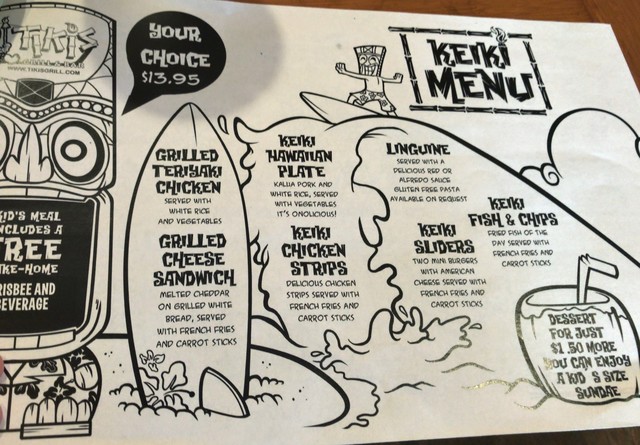 TIKIS
GRILL & BAR
WWW.TIKISGRILL.COM
KID'S MEAL
INCLUDES A
FREE
TAKE-HOME
FRISBEE AND
BEVERAGE
YOUR
CHOICE
$13.95
KEIKI
MENU
GRILLED
TERIYAKI
CHICKEN
SERVED WITH
WHITE RICE
AND VEGETABLES
GRILLED
CHEESE
SANDWICH
MELTED CHEDDAR
ON GRILLED WHITE
BREAD, SERVED
WITH FRENCH FRIES
AND CARROT STICKS
KEIKI
HAWAIIAN
PLATE
KALUA PORK AND
WHITE RICE, SERVED
WITH VEGETABLES
IT'S ONOLICIOUS!
KEIKI
CHICKEN
STRIPS
DELICIOUS CHICKEN
STRIPS SERVED WITH
FRENCH FRIES AND
CARROT STICKS
LINGUINE
SERVED WITH A
DELICIOUS RED OR
ALFREDO SAUCE
GLUTEN FREE PASTA
AVAILABLE ON REQUEST
KEIKI
SLIDERS
TWO MINI BURGERS
WITH AMERICAN
CHEESE SERVED WITH
FRENCH FRIES AND
CARROT STICKS
KEIKI
FISH & CHIPS
FRIED FISH OF THE
DAY SERVED WITH
FRENCH FRIES AND
CARROT STICKS
DESSERT
FOR JUST
$1.50 MORE
YOU CAN ENJOY
A KID'S SIZE
SUNDAE